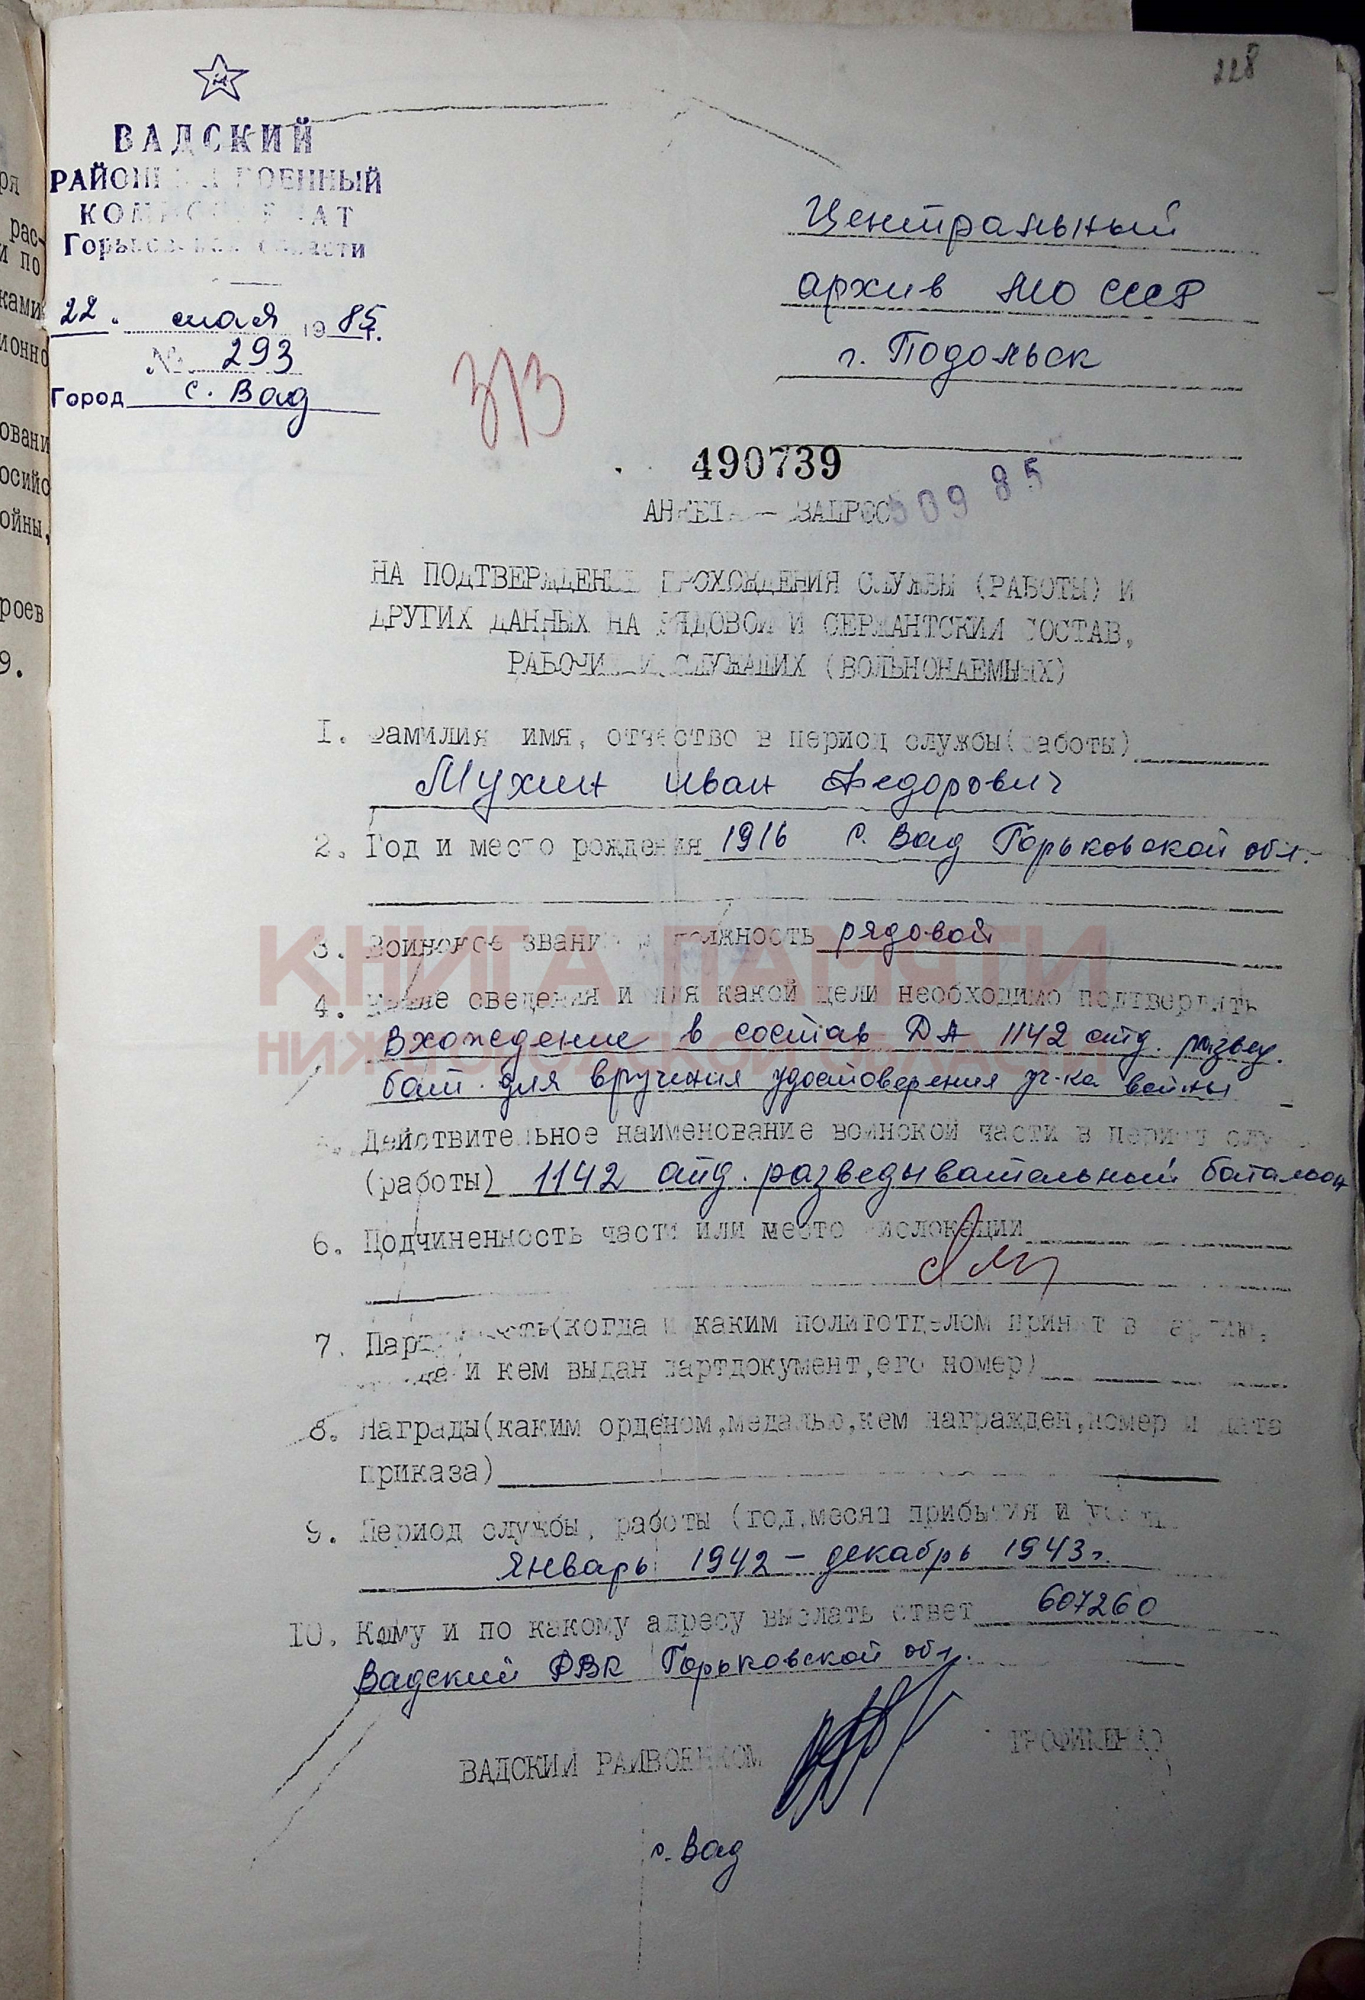 228
ВАДСКИЙ
РАЙОННЫЙ ВОЕННЫЙ
КОМИССАРИАТ
Горьковской области
22. мая 1985 г.
№ 293
Город с. Вад
Центральный
архив МО СССР
г. Подольск
313
490739
509 85
АНКЕТА — ЗАПРОС
НА ПОДТВЕРЖДЕНИЕ ПРОХОЖДЕНИЯ СЛУЖБЫ (РАБОТЫ) И
ДРУГИХ ДАННЫХ НА РЯДОВОЙ И СЕРЖАНТСКИЙ СОСТАВ,
РАБОЧИХ И СЛУЖАЩИХ (ВОЛЬНОНАЕМНЫХ)
1. Фамилия имя, отчество в период службы(работы)
Мухин Иван Федорович
2. Год и место рождения 1916 с. Вад Горьковской обл.
3. Воинское звание и должность рядовой
КНИГА ПАМЯТИ
НИЖЕГОРОДСКОЙ ОБЛАСТИ
4. Какие сведения и для какой цели необходимо подтвердить
Вхождение в состав ДА 1142 отд. развед.
бат. для вручения удостоверения уч-ка войны
5. Действительное наименование воинской части в период служ
(работы) 1142 отд. разведывательный батальон
6. Подчиненность части или место дислокации
7. Партийность(когда и каким политотделом принят в партию,
когда и кем выдан партдокумент,его номер)
8. Награды(каким орденом,медалью,кем награжден,номер и дата
приказа)
9. Период службы, работы (год,месяц прибытия и убытия
Январь 1942 – декабрь 1943 г.
10. Кому и по какому адресу выслать ответ 607260
Вадский РВК Горьковской обл.
ВАДСКИЙ РАЙВОЕНКОМ ТРОФИМЕНКО
с. Вад
ря
рас-
и по
ками
ионно
овани
осийс
ойны,
роев
9.